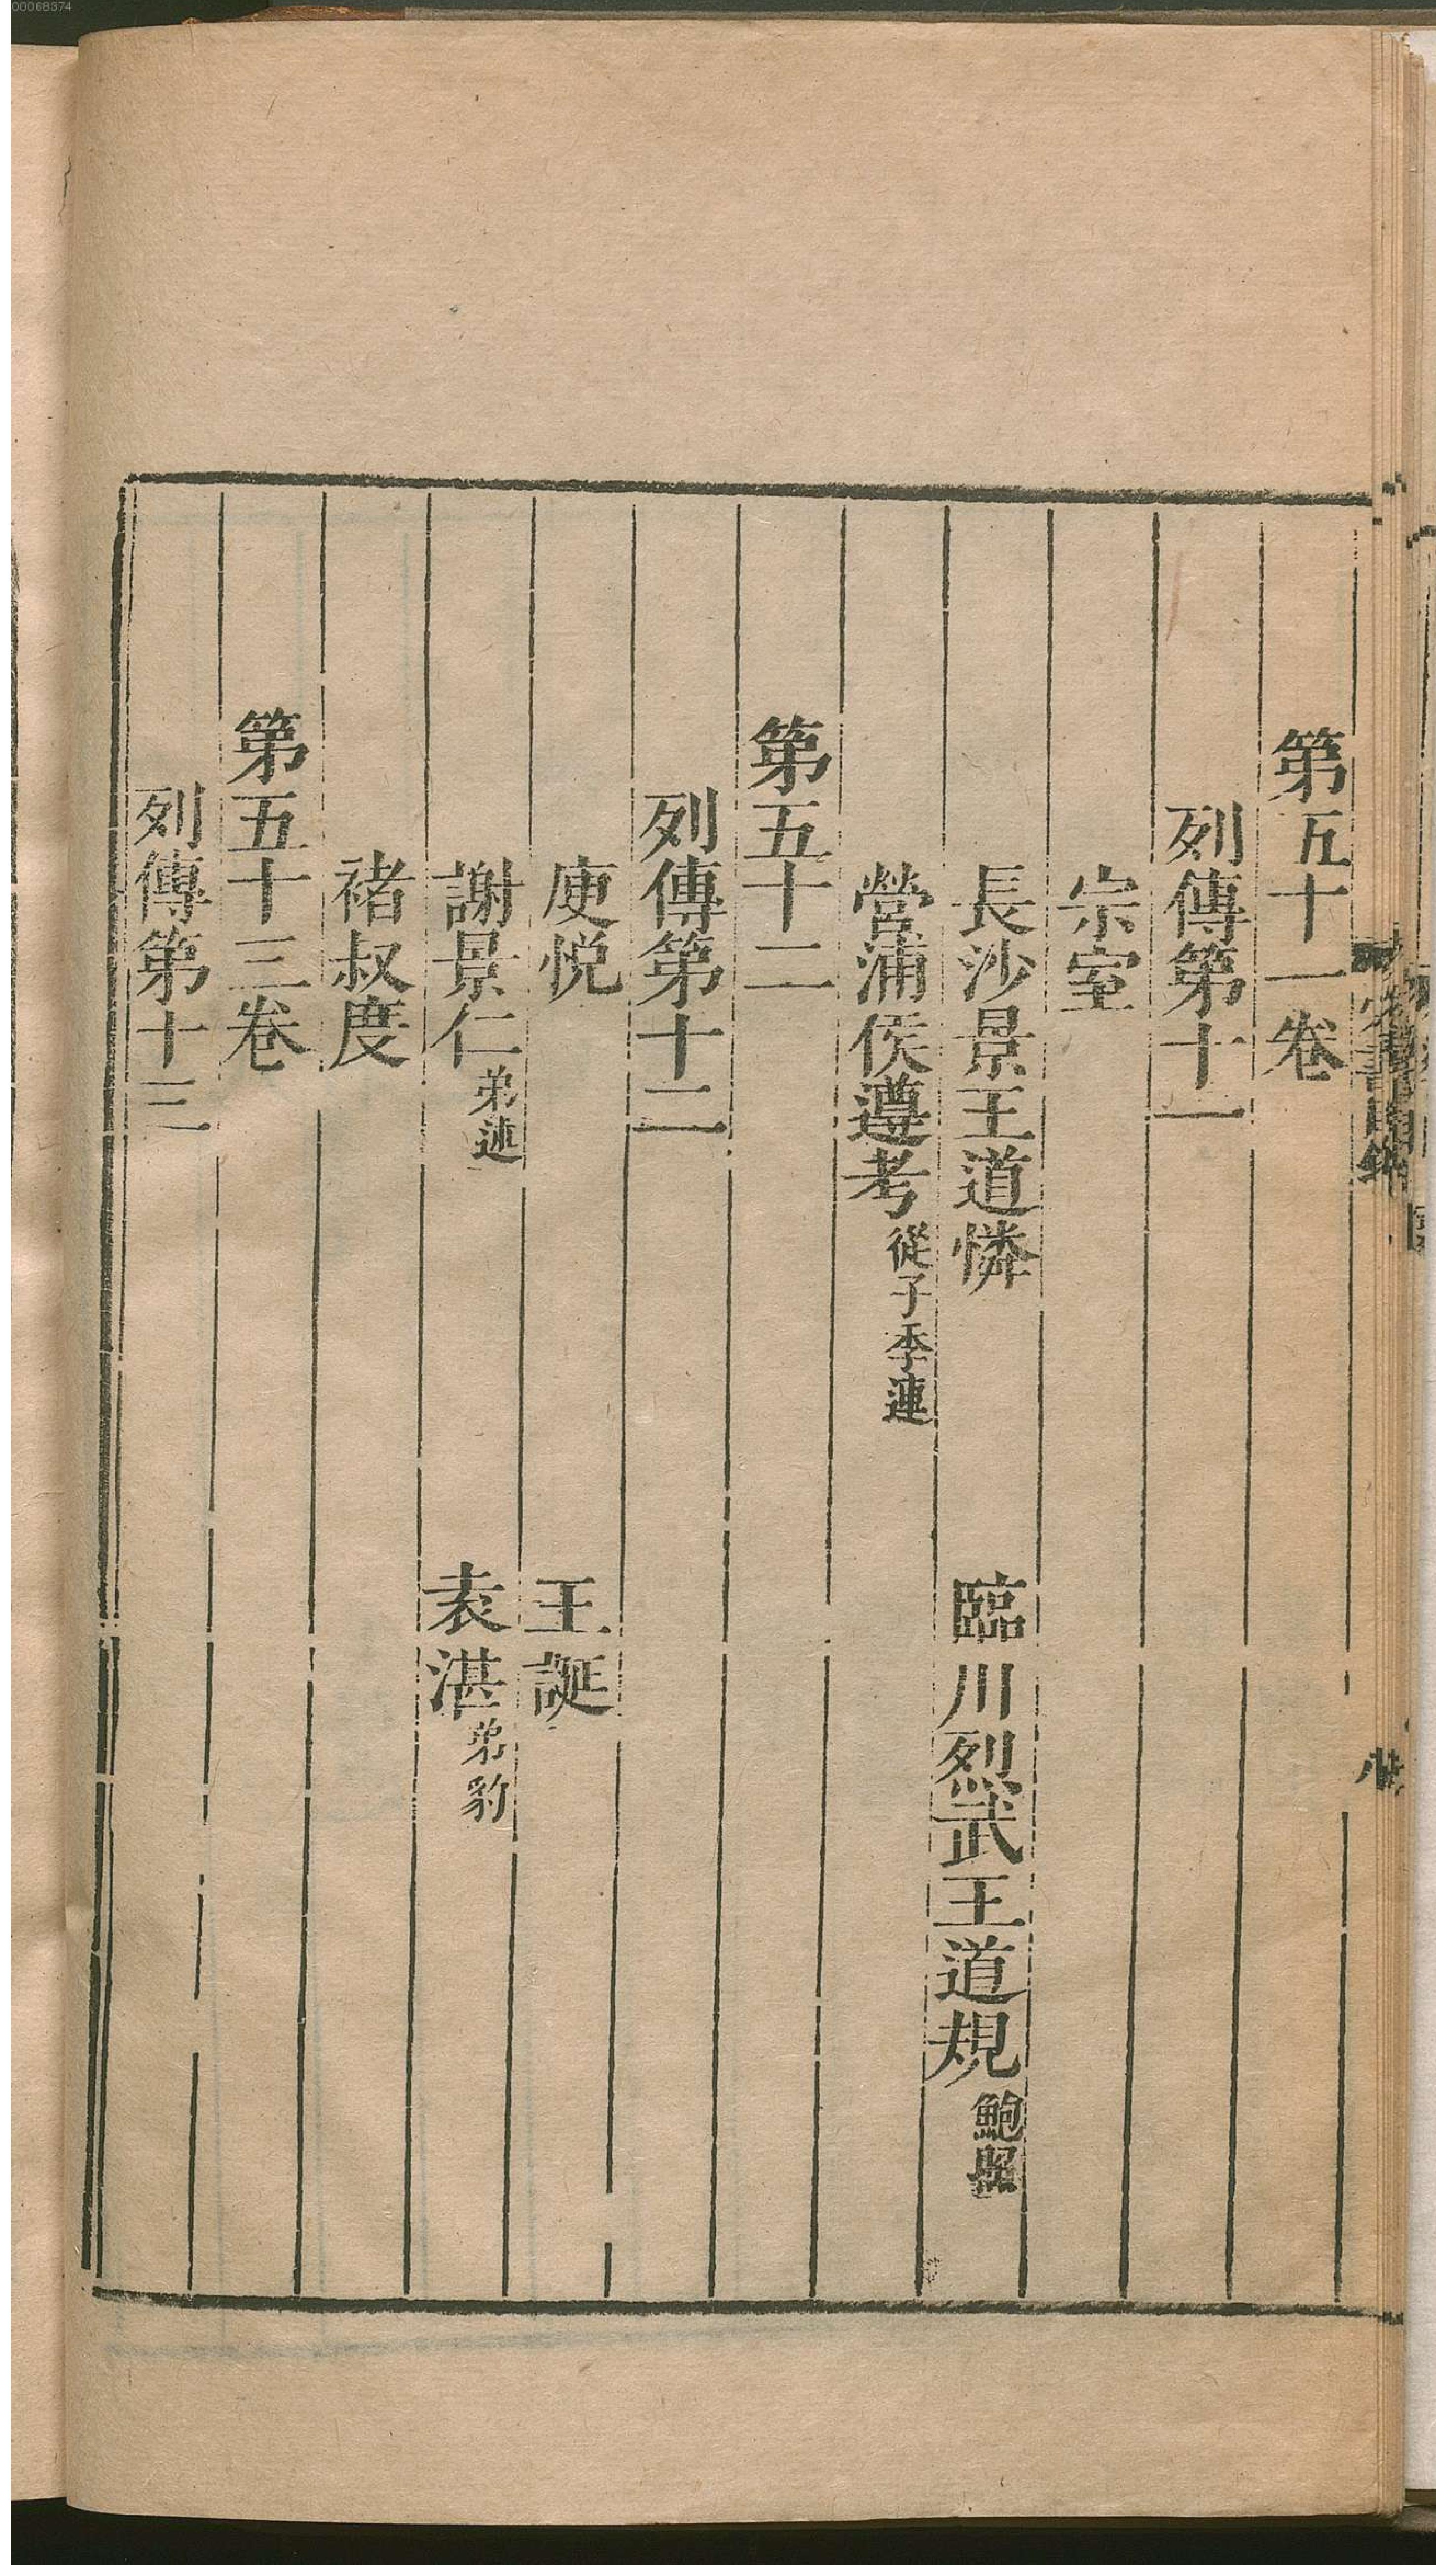 00068374
第五十一卷
列傳第十一
宗室
長沙景王道憐 臨川烈武王道規 鮑照
營浦侯遵考 從子季連
第五十二
列傳第十二
庾悅 王誕
謝景仁 弟述 袁湛 弟豹
褚叔度
第五十三卷
列傳第十三